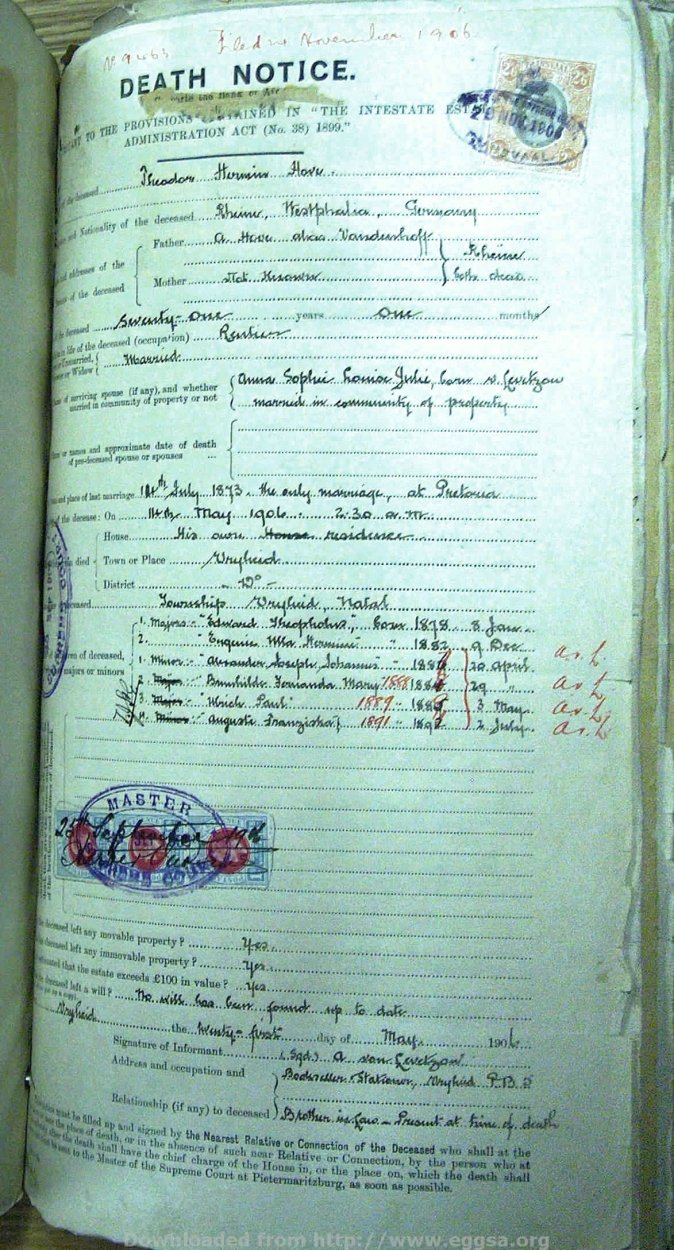 No 9463 Filed 20 November 1906
DEATH NOTICE.
TO THE PROVISIONS CONTAINED IN "THE INTESTATE EST
ADMINISTRATION ACT (No. 38) 1899."
of the deceased Theodor Hermin Hove
and Nationality of the deceased Rheine, Westphalia, Germany
Father A. Hove alias Vanderhoff
and addresses of the Rheine
of the deceased Mother Not Known both dead
deceased Seventy-one years One months
in life of the deceased (occupation) Rentier
or Unmarried, Married
or Widow
of surviving spouse (if any), and whether Anna Sophie Louise Julie, born v. Levetzow
married in community of property or not married in community of property
or names and approximate date of death
of pre-deceased spouse or spouses
and place of last marriage 14th July 1873. the only marriage, at Pretoria
the decease: On 11th May 1906 2.30 a.m.
House His own House residence
died Town or Place Vryheid
District - Do -
deceased Township Vryheid, Natal
1. Major - "Edward Theopholus," born 1878 8 Jan
2. " Eugenie Ella Hermine " 1882 9 Dec
of deceased, 1. Minor - Alexander Joseph Johannes - 1886 20 April
majors or minors 2. Major - Brunhilde Fernanda Mary 1888 29 "
3. Major - Ulrich Paul 1889 3 May
4. Minor - Auguste Franziska 1891 - 1892 2 July
MASTER
25th September 1906
SUPREME COURT
deceased left any movable property? Yes
deceased left any immovable property? Yes
that the estate exceeds £100 in value? Yes
deceased left a will? No will has been found up to date
Vryheid the twenty-first day of May 1906
Signature of Informant (Sgd) A von Levetzow
Address and occupation and Bookseller & Stationer, Vryheid P.B. 2
Relationship (if any) to deceased Brother in Law - Present at time of death
must be filled up and signed by the Nearest Relative or Connection of the Deceased who shall at the
place of death, or in the absence of such near Relative or Connection, by the person who at
the death shall have the chief charge of the House in, or the place on, which the death shall
to the Master of the Supreme Court at Pietermaritzburg, as soon as possible.
Downloaded from http://www.eggsa.org